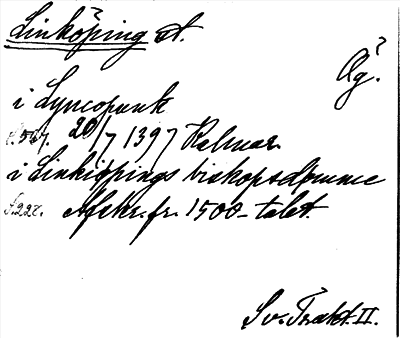 Linköping st.
?
Äg.
i Lyncopunk
s. 567. 20/7 1397 Kalmar
i Linköpings biskopsdömme
s. 228. Afskr. fr. 1500-talet.
Sv. Trakt. II.